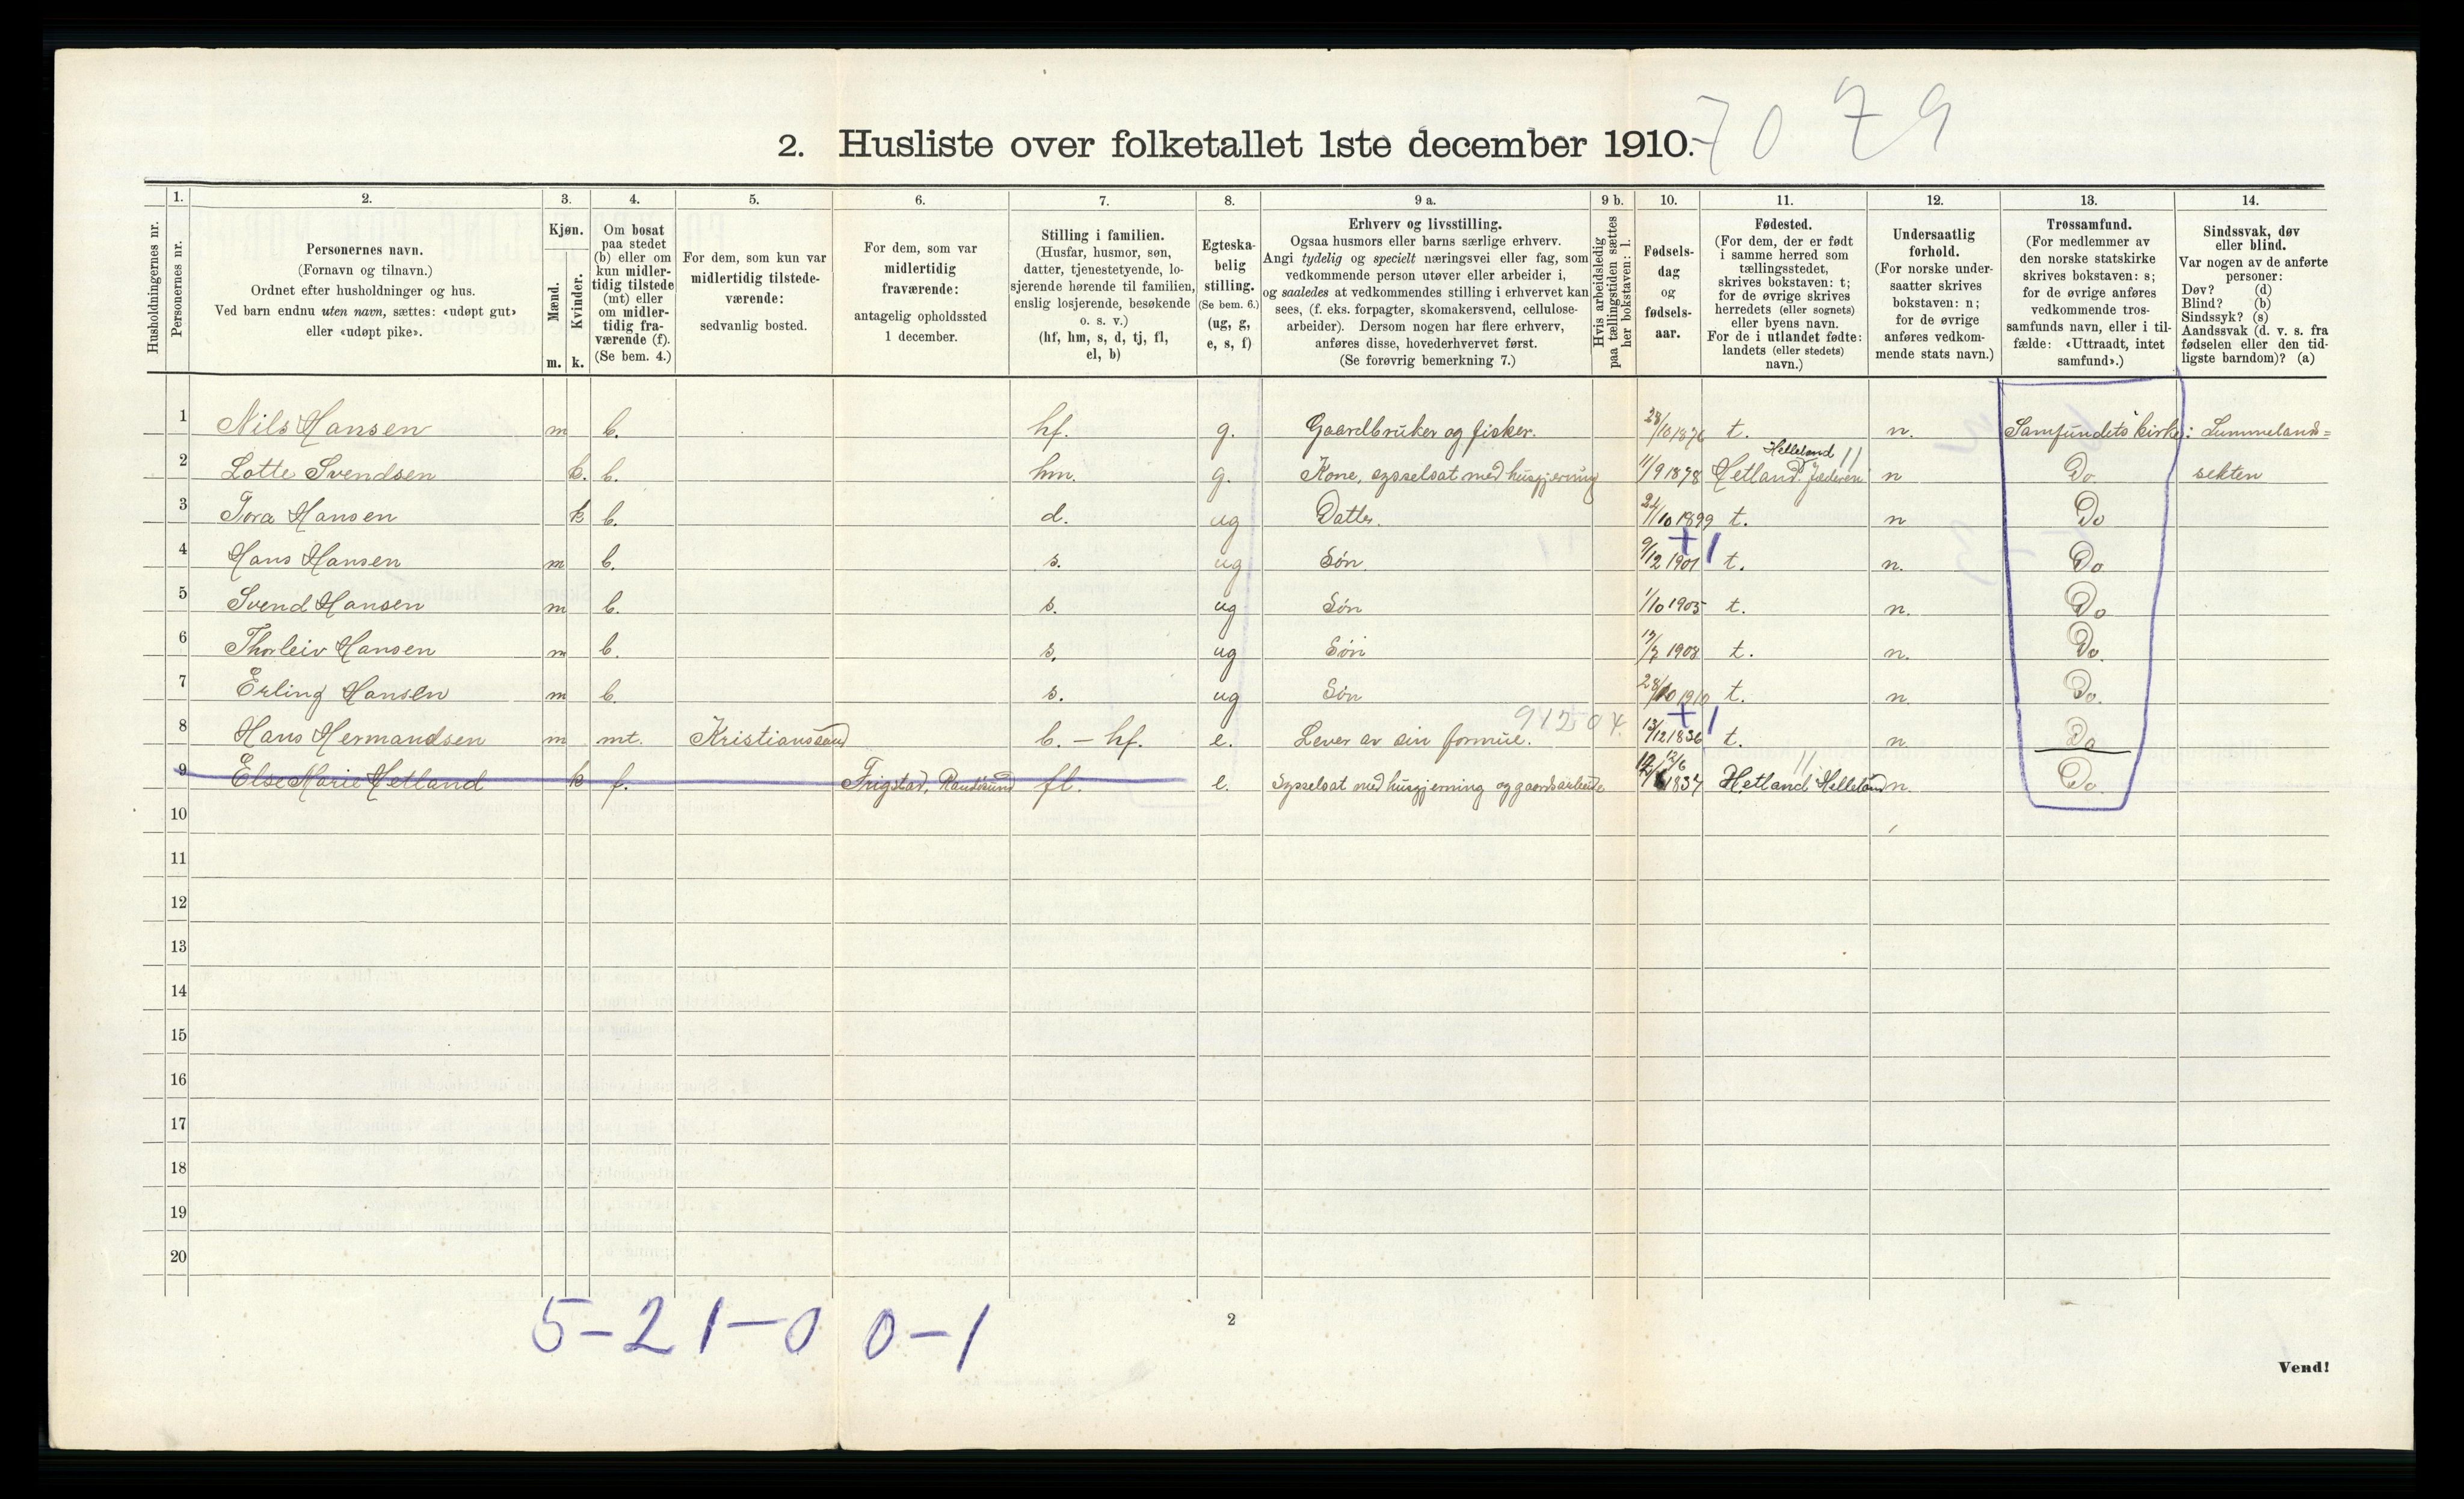 7079
2. Husliste over folketallet 1ste december 1910.
Husholdningernes nr.
1. Personernes nr.
2. Personernes navn.
(Fornavn og tilnavn.)
Ordnet efter husholdninger og hus.
Ved barn endnu uten navn, sættes: «udøpt gut»
eller «udøpt pike».
3. Kjøn.
Mænd. m.
Kvinder. k.
4. Om bosat
paa stedet
(b) eller om
kun midler-
tidig tilstede
(mt) eller
om midler-
tidig fra-
værende (f).
(Se bem. 4.)
5. For dem, som kun var
midlertidig tilstede-
værende:
sedvanlig bosted.
6. For dem, som var
midlertidig
fraværende:
antagelig opholdssted
1 december.
7. Stilling i familien.
(Husfar, husmor, søn,
datter, tjenestetyende, lo-
sjerende hørende til familien,
enslig losjerende, besøkende
o. s. v.)
(hf, hm, s, d, tj, fl,
el, b)
8. Egteska-
belig
stilling.
(Se bem. 6.)
(ug, g,
e, s, f)
9 a. Erhverv og livsstilling.
Ogsaa husmors eller barns særlige erhverv.
Angi tydelig og specielt næringsvei eller fag, som
vedkommende person utøver eller arbeider i,
og saaledes at vedkommendes stilling i erhvervet kan
sees, (f. eks. forpagter, skomakersvend, cellulose-
arbeider). Dersom nogen har flere erhverv,
anføres disse, hovederhvervet først.
(Se forøvrig bemerkning 7.)
9 b. Hvis arbeidsledig
paa tællingstiden sættes
her bokstaven: l.
10. Fødsels-
dag
og
fødsels-
aar.
11. Fødested.
(For dem, der er født
i samme herred som
tællingsstedet,
skrives bokstaven: t;
for de øvrige skrives
herredets (eller sognets)
eller byens navn.
For de i utlandet fødte:
landets (eller stedets)
navn.)
12. Undersaatlig
forhold.
(For norske under-
saatter skrives
bokstaven: n;
for de øvrige
anføres vedkom-
mende stats navn.)
13. Trossamfund.
(For medlemmer av
den norske statskirke
skrives bokstaven: s;
for de øvrige anføres
vedkommende tros-
samfunds navn, eller i til-
fælde: «Uttraadt, intet
samfund».)
14. Sindssvak, døv
eller blind.
Var nogen av de anførte
personer:
Døv? (d)
Blind? (b)
Sindssyk? (s)
Aandssvak (d. v. s. fra
fødselen eller den tid-
ligste barndom)? (a)
1 Nils Hansen m b. hf. g. Gaardbruker og fisker. 28/10 1876 t. n. Samfundets kirke: Lummelands=
2 Lotte Svendsen k. b. hm. g. Kone, sysselsat med husgjerning 11/9 1878 Hetland Helleland Jæderen n Do. sekten
3 Tora Hansen k b. d. ug Datter. 1899 t. n Do
4 Hans Hansen m b. s. ug Søn 9/12 1901 t. n. Do.
5 Svend Hansen m b. s. ug Søn 1/10 1905 t. n. Do
6 Thorleiv Hansen m b. s. ug Søn 1908 t. n. Do.
7 Erling Hansen m b. s. ug Søn 28/10 1910 t. n. Do.
8 Hans Hermandsen m mt. Kristianssand b. - hf. e. Lever av sin formue. 13/12 1836 t. n. Do
9 Else Marie Hetland k f. Frigstad, Randøsund fl. e. Sysselsat med husgjerning og gaardsarbeide 12/6 1837 Hetland Helleland n. Do.
10
11
12
13
14
15
16
17
18
19
20
5-21-0 0-1
2
Vend!